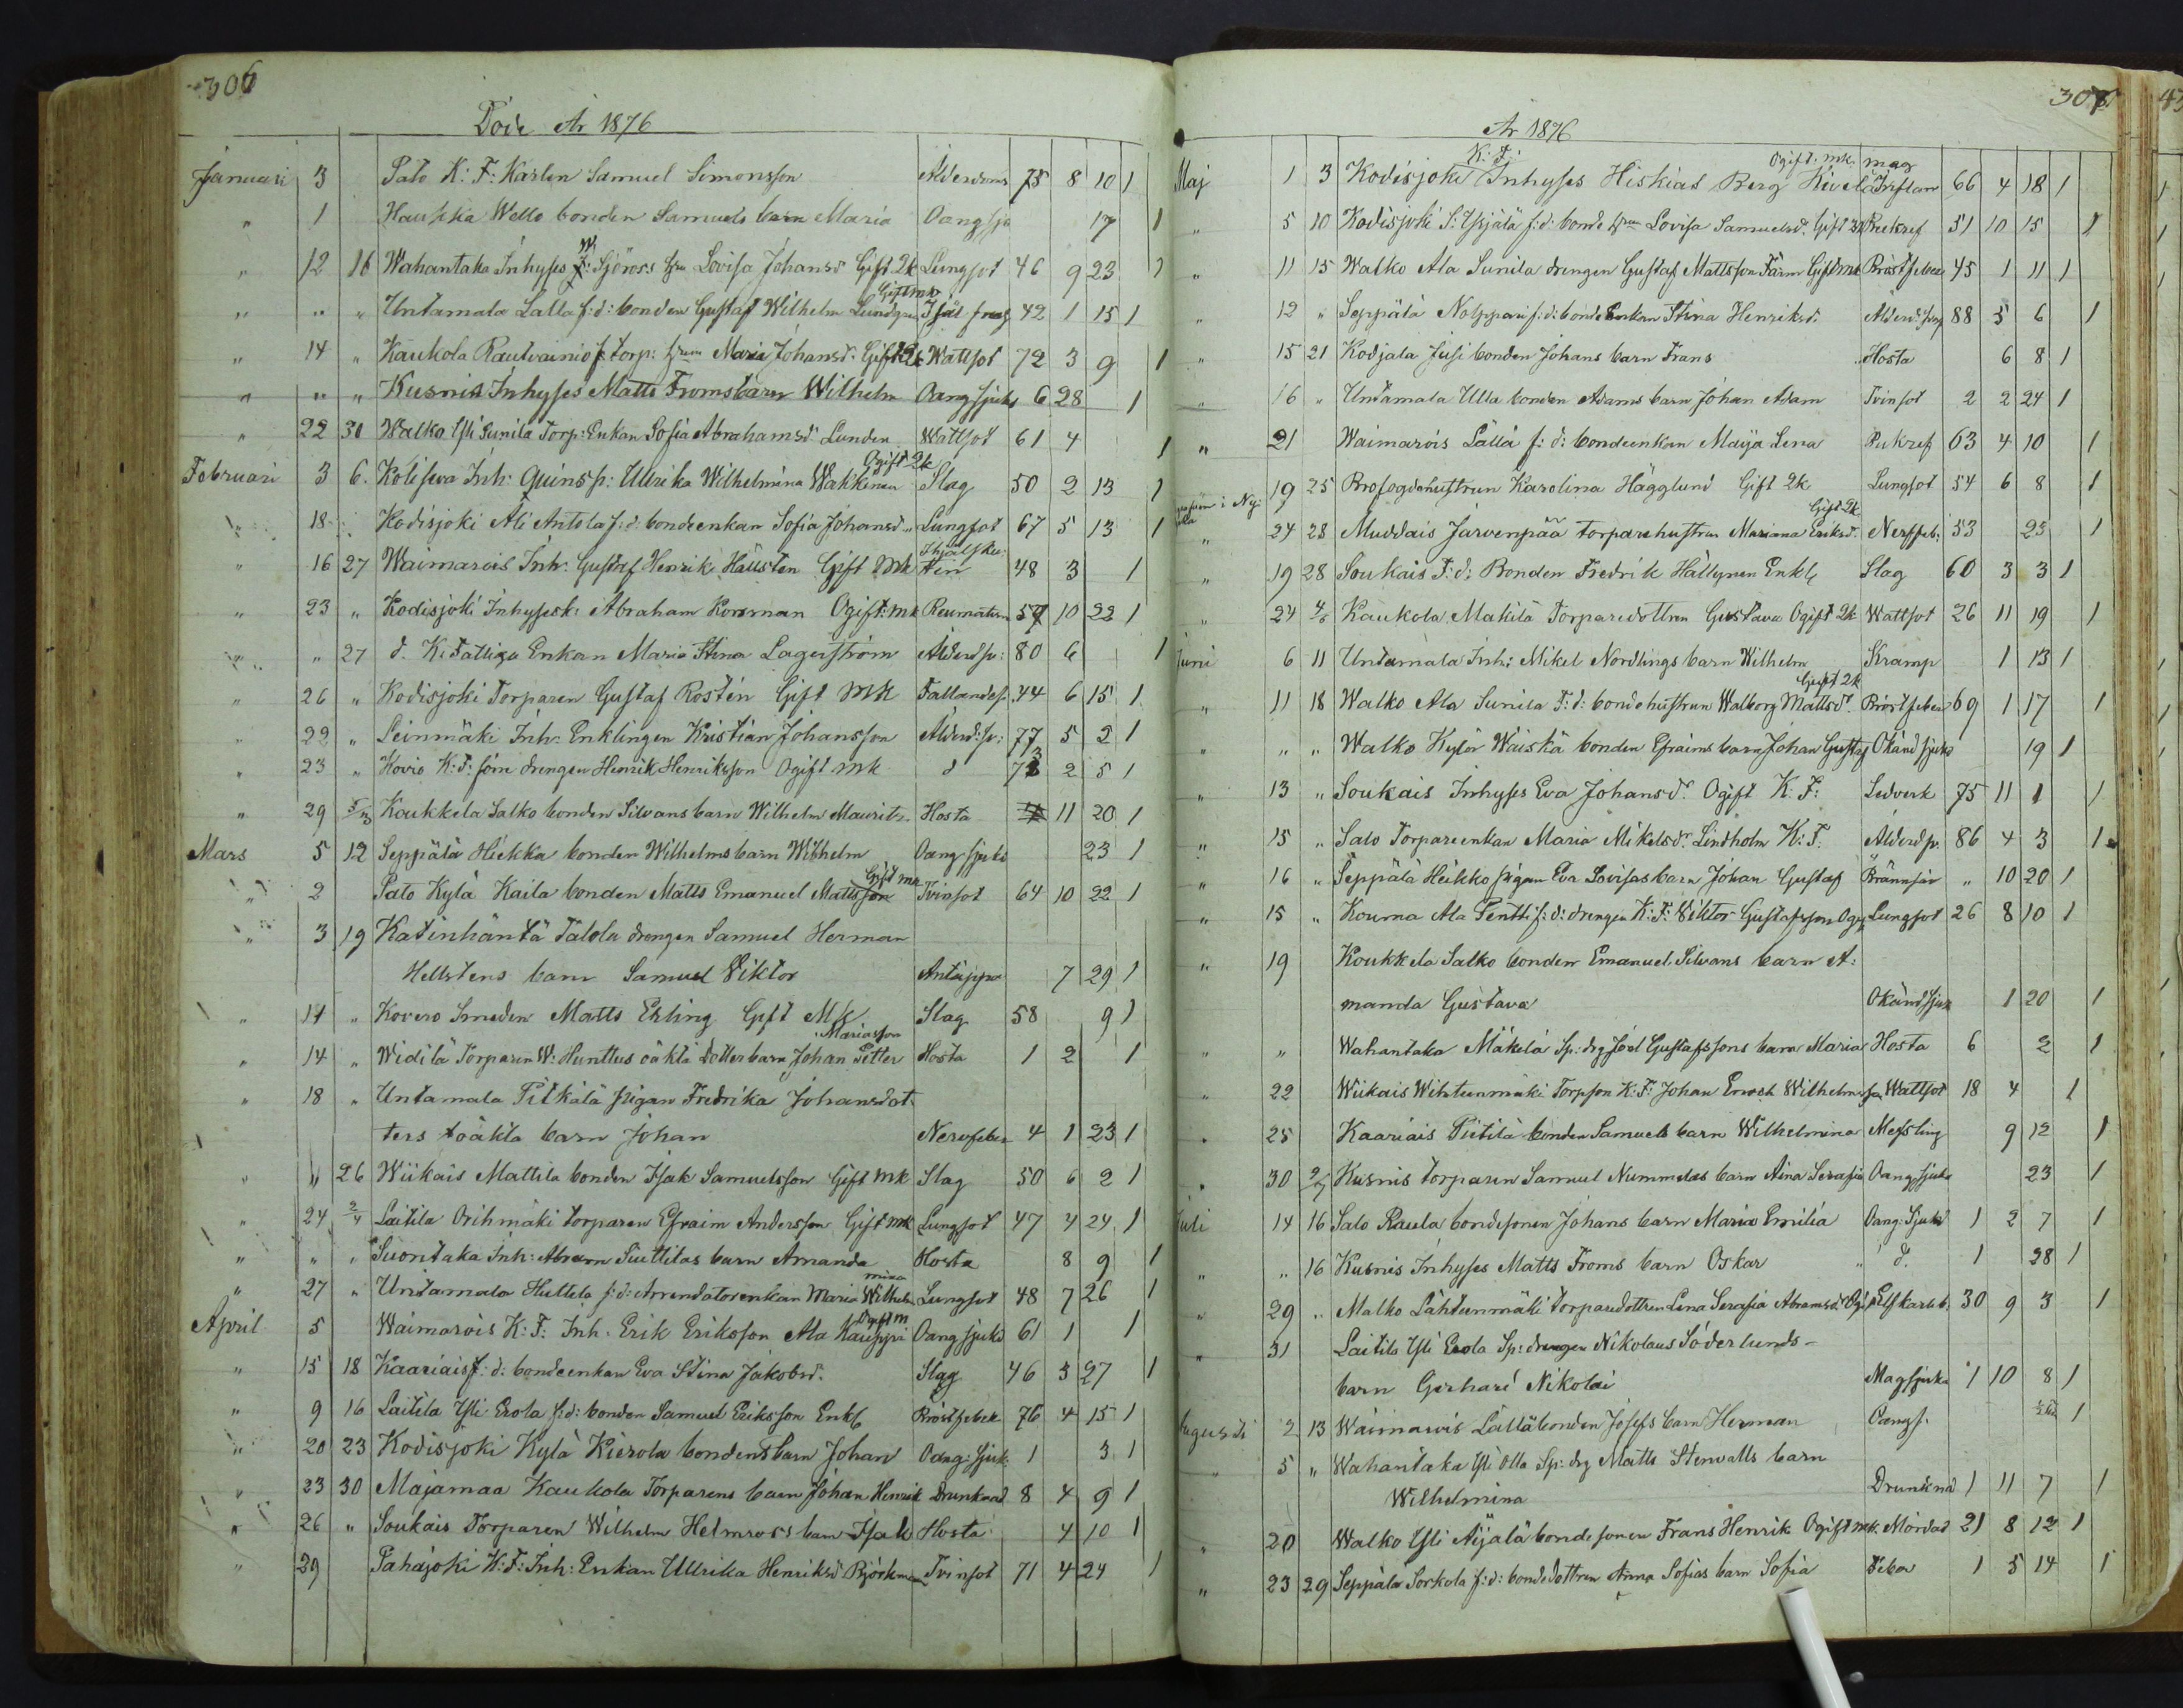 306
Döde År 1876
Januari 3 Palo K: F: Karlen Samuel Simonsson Ålderdoms 75 8 10 1
" 1 Haukka Wello bonden Samuels barn Maria Oangsju 17 1
" 12 16 Wahantaka Inhyses W. Sjöross hru Lovisa Johansdr Gift 2k Lungsot 46 9 23 1
" " " Untamala Lalla f: d: bonden Gustaf Wilhelm Lundgren Gift mk 42 1 15 1
" 14 " Kaukola Rautvainio f. torp: hrun Maria Johansdr Gift 2k Wattsot 72 3 9 1
" " " Kusnis Inhyses Matts Froms barn Wilhelm Oangsjukd 6 28 1
" 22 30 Walko Yli Sunila Torp: Enkan Sofia Abrahamsdr Lunden Wattsot 61 4 1
Februari 3 6. Inh: Qvinsp: Ullrika Wilhelmina Wakkinen Ogift 2k Slag 50 2 13 1
" 18 Kodisjoki Ali Antola f: d: bondeenkan Sofia Johansd. Lungsot 67 5 13 1
" 16 27 Waimarois Inh: Gustaf Henrik Hällsten Gift mk 48 3 1
" 23 " Kodisjoki Inhyses k: Abraham Korsman Ogift: mk Reumatism 59 10 22 1
" " 27 d. K: Fattiga Enkan Maria Stina Lagerström Ålderdsv: 80 6 1
" 26 " Kodisjoki Torparen Gustaf Rostén Gift mk Fallandes. 44 6 15 1
" 22 " Leinmäki Inh: Enklingen Kristian Johansson Ålderd:sv: 77 5 2 1
" 23 " Kovio K: F: före drengen Henrik Henriksson Ogift mk d 73 2 5 1
" 29 5/3 Koukkela Salko bonden Silvans barn Wilhelm Maurits Hosta 11 20 1
Mars 5 12 Seppälä Hiekka bonden Wilhelms barn Wilhelm Oangsjukd 23 1
" 2 Palo Kylä Kaila bonden Matts Emanuel Mattsson Gift mk Tvinsot 64 10 22 1
" 3 19 Katinhäntä Talola drengen Samuel Herman
Hellstens barn Samuel Viktor 7 29 1
" 14 " Kovero Smeden Matts Ekling Gift Mk Slag 58 9 1
" 14 " Widilä Torparen W: Hunttus oäkta dotterbarn Johan Petter Mariasson Hosta 1 2 1
" 18 " Untamala Pitkälä pigan Fredrika Johansdot
ters oäkta barn Johan Nervfeber 4 1 23 1
" " 26 Wiikais Mattila bonden Isak Samuelsson Gift mk Slag 50 6 2 1
" 24 2/4 Laitila Orihmäki torparen Efraim Andersson Gift mk Lungsot 47 4 24 1
" " " Suontaka Inh: Abram Siuttilas barn Amanda Hosta 8 9 1
" 27 " Untamala Huttila f: d: Arrendatorenkan Maria Wilhelmina Lungsot 48 7 26 1
April 5 Waimarois K: F: Inh. Erik Eriksson Ala Kauppi Ogift m Oangsjukd 61 1 1
" 15 18 Kaariais f: d: bondeenkan Eva Stina Jakobsd. Slag 46 3 27 1
" 9 16 Laitila Yli Erola f: d: bonden Samuel Eriksson Enkl Bröstfeber 76 4 15 1
" 20 23 Kodisjoki Kylä Kierola bondens barn Johan Oang: sjuk: 1 3 1
" 23 30 Majamaa Kaukola Torparens barn Johan Henrik Drunknad 8 4 9 1
" 26 " Soukais Torparen Wilhelm Helmross barn Isak Hosta 4 10 1
" 29 Pahajoki K: F: Inh: Enkan Ullrika Henriksd Björkman Tvinsot 71 4 24 1
307
År 1876
Maj 1 3 Kodisjoki K: F: Inhyses Hiskias Berg Kivelä Ogift. mk. mag 66 4 18 1
" 5 10 Kodisjoki S: Ypjälä f: d: bonde hrun Lovisa Samuelsd. Gift 2k 51 10 15 1
" 11 15 Walko Ala Sunila drengen Gustaf Mattsson Färm Gift mk Bröstfeber 45 1 11 1
" 12 " Seppälä Nolppari f: d: bonde Enkan Stina Henriksd. 88 5 6 1
" 15 21 Kodjala Jusi bonden Johans barn Frans Hosta 6 8 1
" 16 " Untamala Ulla bonden Adams barn Johan Adam Tvinsot 2 2 24 1
" 21 Waimarois Lalla f: d: bondeenkan Maija Lena 63 4 10 1
19 25 Brofogdehustrun Karolina Hägglund Gift 2k Lungsot 54 6 8 1
" 24 28 Muddais Järvenpää torparehustrun Mariana Eriksd. Gift 2k Nerffeb: 53 23 1
" 19 28 Soukais F: d: Bonden Fredrik Hällynen Enkl Slag 60 3 3 1
" 24 4/6 Kaukola Mäkilä Torparedottren Gustava Ogift 2k Wattsot 26 11 19 1
Juni 6 11 Untamala Inh: Mikel Nordlings barn Wilhelm Kramp 1 13 1
" 11 18 Walko Ala Sunila F: d: bondehustrun Walborg Mattsdr. Gift 2k Bröstfeber 69 1 17 1
" " " Walko Kylän Waiskä bonden Efraims barn Johan Gustaf Okändsjukd 19 1
" 13 " Soukais Inhyses Eva Johansdr. Ogift K: F: Ledverk 75 11 1 1
" 15 " Salo Torpareenkan Maria Mikelsdr. Lindholm K: F: Ålderdsv. 86 4 3 1
" 16 " Seppälä Heikko pigan Eva Lovisas barn Johan Gustaf Brännsår " 10 20 1
" 15 " Kouma Ala Pentti f: d: drengen K: F: Viktor Gustafsson Ogift Lungsot 26 8 10 1
" 19 Koukkela Salko bonden Emanuel Silvans barn A:
manda Gustava Okändsjuk 1 20 1
" " Wahantaka Mäkelä Sp: drg Joel Gustafssons barn Maria Hosta 6 2 1
" 22 Wiikais Wihtunmäki Torpson K: F: Johan Ernest Wilhelmsson Wattsot 18 4 1
" 25 Kaariais Pietilä bonden Samuels barn Wilhelmina Messling 9 12 1
" 30 2/7 Kusnis torparen Samuel Nummelas barn Aina Serafia Oangsjukd 23 1
Juli 14 16 Salo Raula bondesonen Johans barn Maria Emilia Oang: Sjukd 1 2 7 1
" " 16 Kusnis Inhyses Matts Froms barn Oskar " d. 1 28 1
" 29 " Malko Lähteenmäki torparedottren Lena Serafia Abramsd. 30 9 3 1
" 31 Laitila Yli Erola Sp: drengen Nikolaus Söderlunds-
barn Gerhard Nikolai Magsjuka 1 10 8 1
Augusti 2 13 Waimarois Lällä bonden Josefs barn Herman Oangs. 1
" 5 " Wahantaka Yli Olla Sp: drg Matts Stenvalls barn
Wilhelmina Drunknad 1 11 7 1
" 20 Walko Yli Äijälä bondesonen Frans Henrik Ogift mk. Mördad 21 8 12 1
" 23 29 Seppälä Sorkola f: d: bondedottren Anna Sofias barn Sofia Feber 1 5 14 1